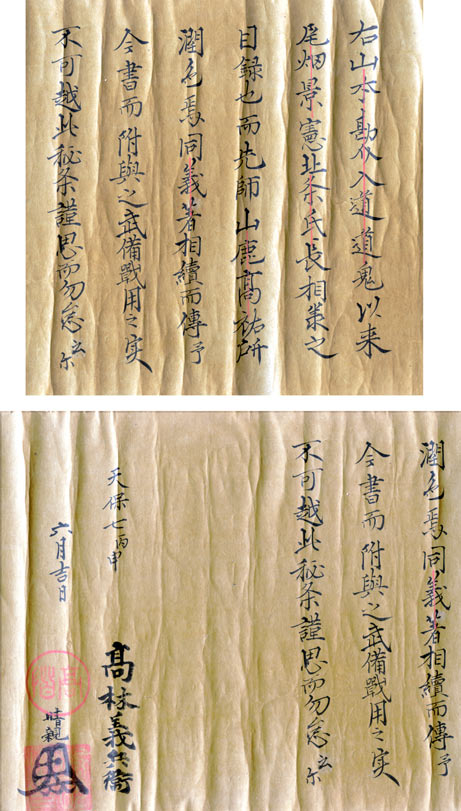 右山本勘介入道道鬼以来
尾畑景憲北条氏長相承之
目録也而先師山鹿高祐所
潤色焉同義著相續而傳予
今書而附與之武備戰用之実
不可越此秘条謹思而勿怠云尓
潤色焉同義著相續而傳予
今書而附與之武備戰用之実
不可越此秘条謹思而勿怠云尓
天保七丙申
六月吉日
高林義兵衛
晴親